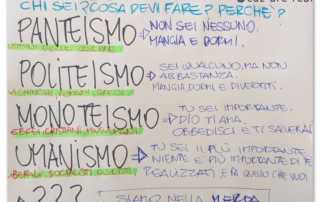 CHI SEI? COSA DEVI FARE? PERCHÉ?
PANTEISMO
NON SEI NESSUNO.
MANGIA E DORMI.
POLITEISMO
SEI QUALCUNO, MA NON
ABBASTANZA.
MANGIA, DORMI E DIVERTITI.
MONOTEISMO
TU SEI IMPORTANTE.
DIO TI AMA.
OBBEDISCI E TI SALVERAI
EBREI CRISTIANI MUSULMANI
UMANISMO
TU SEI IL PIÙ IMPORTANTE
NIENTE È PIÙ IMPORTANTE DI TE
REALIZZATI E FAI QUELLO CHE VUOI
???
SIAMO NELLA MERDA